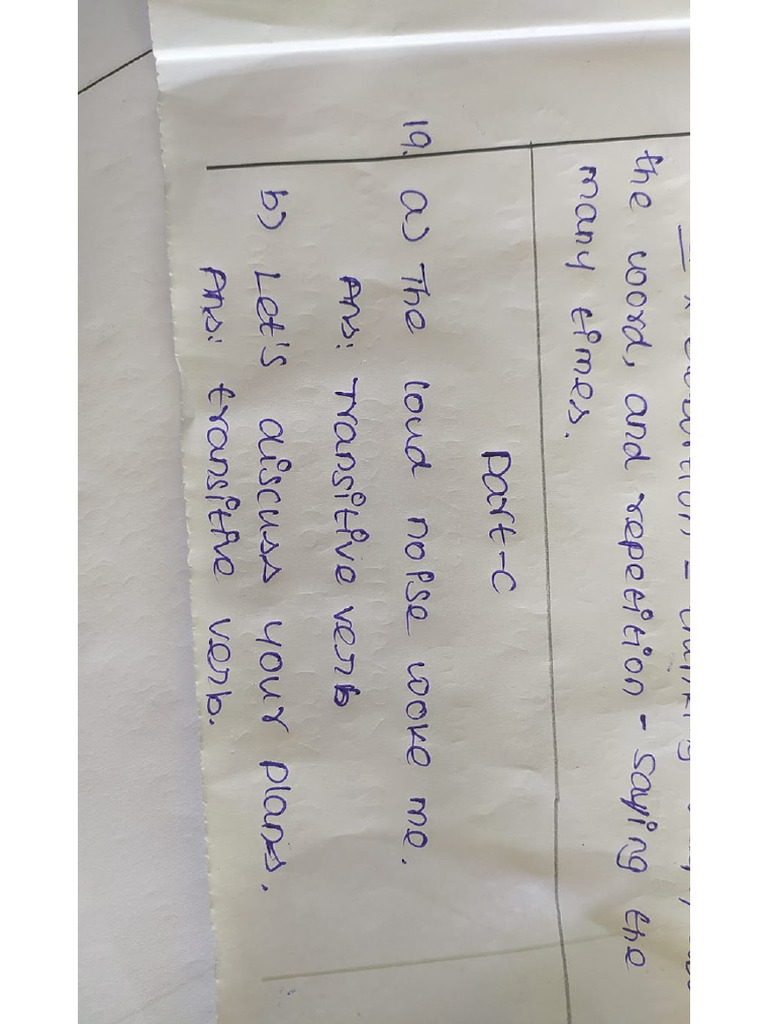 the word, and repetition - saying the
many times.
Part-C
19. a) The loud noise woke me.
Ans: Transitive verb
b) Let's discuss your plans.
Ans: transitive verb.